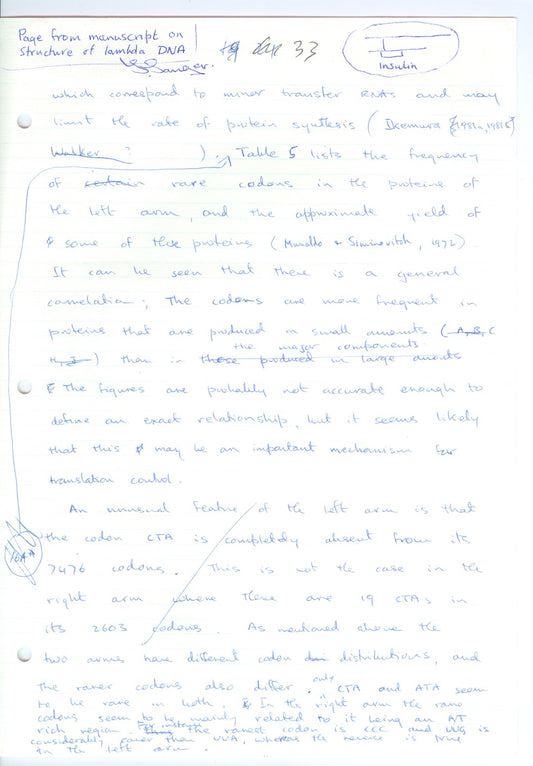 Page from manuscript on
Structure of lambda DNA
F Sanger.
33
insulin
which correspond to minor transfer RNAs and may
limit the rate of protein synthesis (Ikemura 1981a, 1981b
Walker ? ). Table 5 lists the frequency
of certain rare codons in the proteins of
the left arm, and the approximate yield of
some of these proteins (Murialdo & Siminovitch, 1972).
It can be seen that there is a general
correlation; The codons are more frequent in
proteins that are produced in small amounts (A, B, C
H, I) than in those produced in large amounts
the major components
The figures are probably not accurate enough to
define an exact relationship, but it seems likely
that this may be an important mechanism for
translation control.
An unusual feature of the left arm is that
the codon CTA is completely absent from its
7476 codons. This is not the case in the
right arm where there are 19 CTAs in
its 2603 codons. As mentioned above the
two arms have different codon distributions, and
the rarer codons also differ. only CTA and ATA seem
to be rare in both. In the right arm the rare
codons seem to be mainly related to it being an A/T
rich region. For instance the rarest codon is CCC and UUG is
considerably rarer than UUA, whereas the reverse is true
in the left arm.
16AA